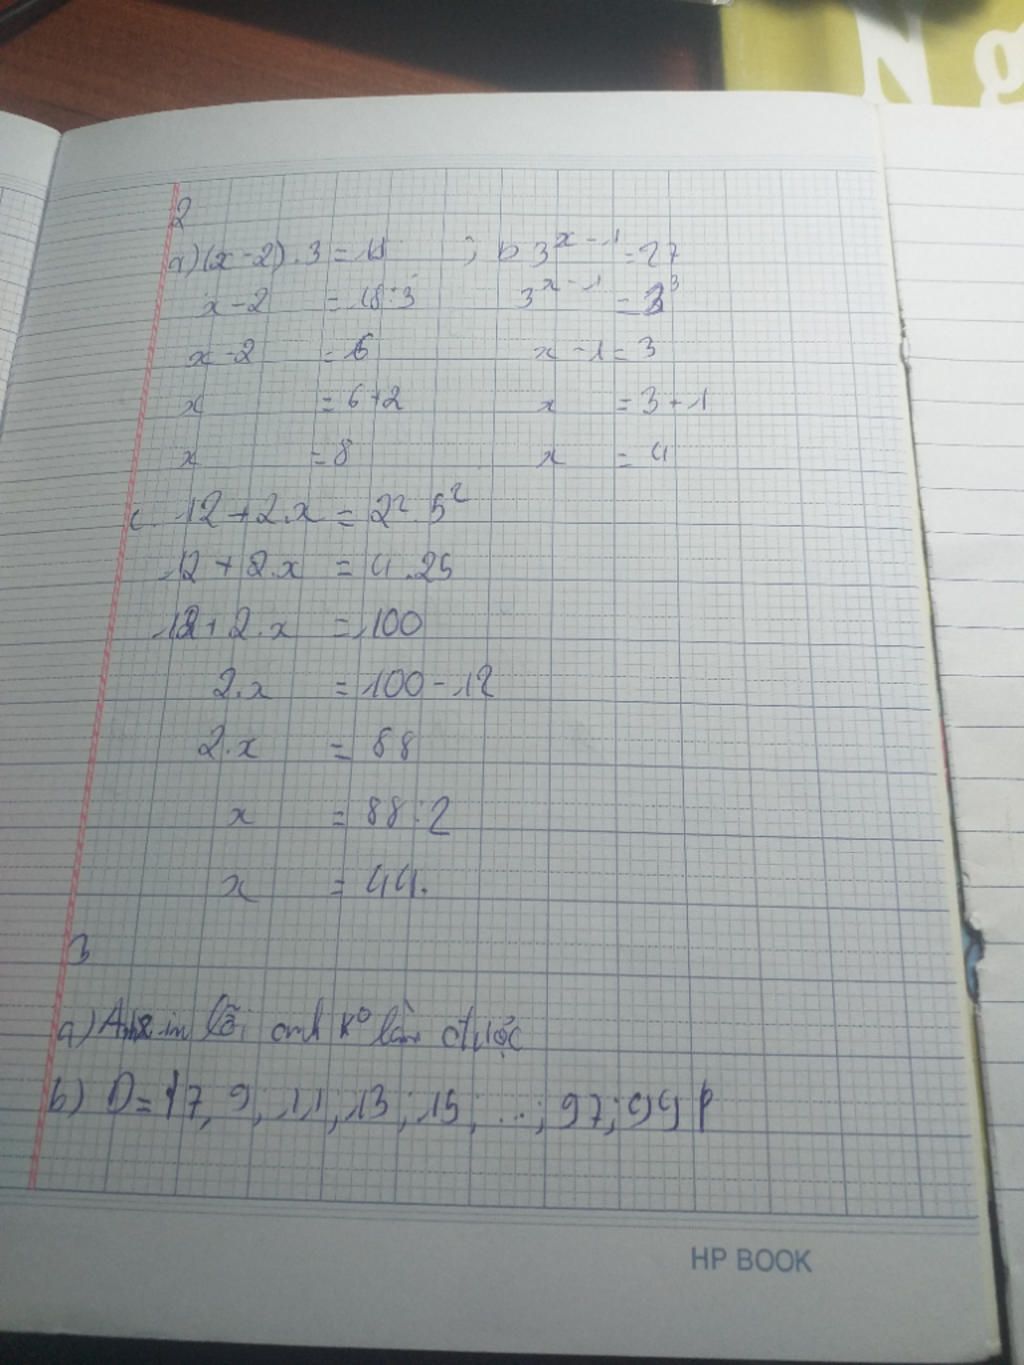 N g
2
a) (x-2).3 = 18 ; b 3^{x-1} = 27
x-2 = 18:3 3^{x-1} = 3^3
x-2 = 6 x-1 = 3
x = 6+2 x = 3+1
x = 8 x = 4
c. 12+2.x = 2^2.5^2
12+2.x = 4.25
12+2.x = 100
2.x = 100-12
2.x = 88
x = 88:2
x = 44.
3
a) xin lỗi anh k° làm được
b) D = {7, 9; 11; 13; 15; ...; 97; 99}
HP BOOK